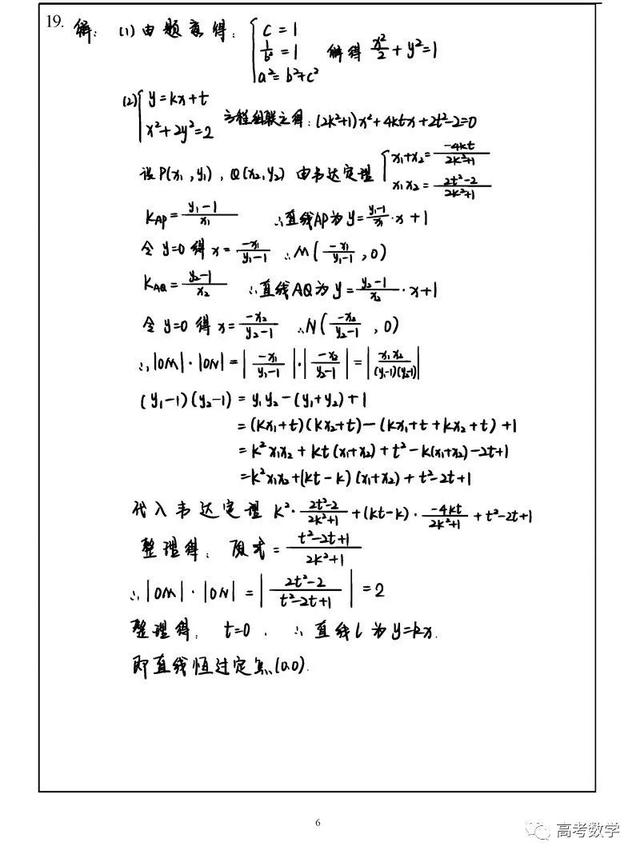 19. 解: (1) 由题意得: { c = 1
1/b² = 1 解得 x²/2 + y² = 1
a² = b² + c²
(2) { y = kx + t
x² + 2y² = 2 方程组联立得: (2k²+1)x² + 4ktx + 2t² - 2 = 0
设 P(x₁, y₁), Q(x₂, y₂) 由韦达定理 { x₁ + x₂ = -4kt/2k²+1
x₁x₂ = 2t²-2/2k²+1
K_AP = y₁-1/x₁ ∴直线AP为 y = y₁-1/x₁ · x + 1
令 y=0 得 x = -x₁/y₁-1 ∴M(-x₁/y₁-1, 0)
K_AQ = y₂-1/x₂ ∴直线AQ为 y = y₂-1/x₂ · x + 1
令 y=0 得 x = -x₂/y₂-1 ∴N(-x₂/y₂-1, 0)
∴|OM|·|ON| = |-x₁/y₁-1|·|-x₂/y₂-1| = |x₁x₂/(y₁-1)(y₂-1)|
(y₁-1)(y₂-1) = y₁y₂ - (y₁+y₂) + 1
= (kx₁+t)(kx₂+t) - (kx₁+t+kx₂+t) + 1
= k²x₁x₂ + kt(x₁+x₂) + t² - k(x₁+x₂) - 2t + 1
= k²x₁x₂ + (kt-k)(x₁+x₂) + t² - 2t + 1
代入韦达定理 k² · 2t²-2/2k²+1 + (kt-k) · -4kt/2k²+1 + t² - 2t + 1
整理得: 原式 = t²-2t+1/2k²+1
∴|OM|·|ON| = |2t²-2/t²-2t+1| = 2
整理得: t=0. ∴直线l为 y=kx.
即直线恒过定点(0,0).
6
高考数学